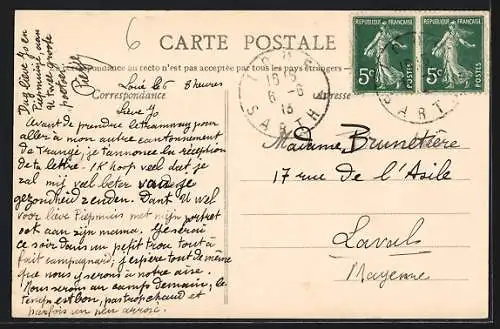 6
CARTE POSTALE
REPUBLIQUE FRANÇAISE
5c POSTES
REPUBLIQUE FRANÇAISE
5c POSTES
Dag lieve Jo en
Piepmuisje aan
U twee groote
pootjes
Pieffy
Correspondance au recto n'est pas accepté par tous les pays étrangers
Correspondance
Adresse
6-6
13
SARTHE
SARTHE
Loué le 6 8 heures
Lieve Jo
Avant de prendre le tramway pour
aller à mon autre cantonnement
de Trangé, je t'annonce la réception
de ta lettre. Ik hoop veel dat je
zal mij veel beter van je
gezondheid zenden. Dank U wel
voor lieve Piepmuis met mijn portret
ook aan zijn mama. Je serai
ce soir dans un petit trou tout à
fait campagnard; j'espère tout de même
que nous y serons à notre aise.
Nous serons au camp demain, le
temps est bon, pas trop chaud et
parfois un peu arrosé.
Madame Brunetière
17 rue de l'Asile
Laval
Mayenne